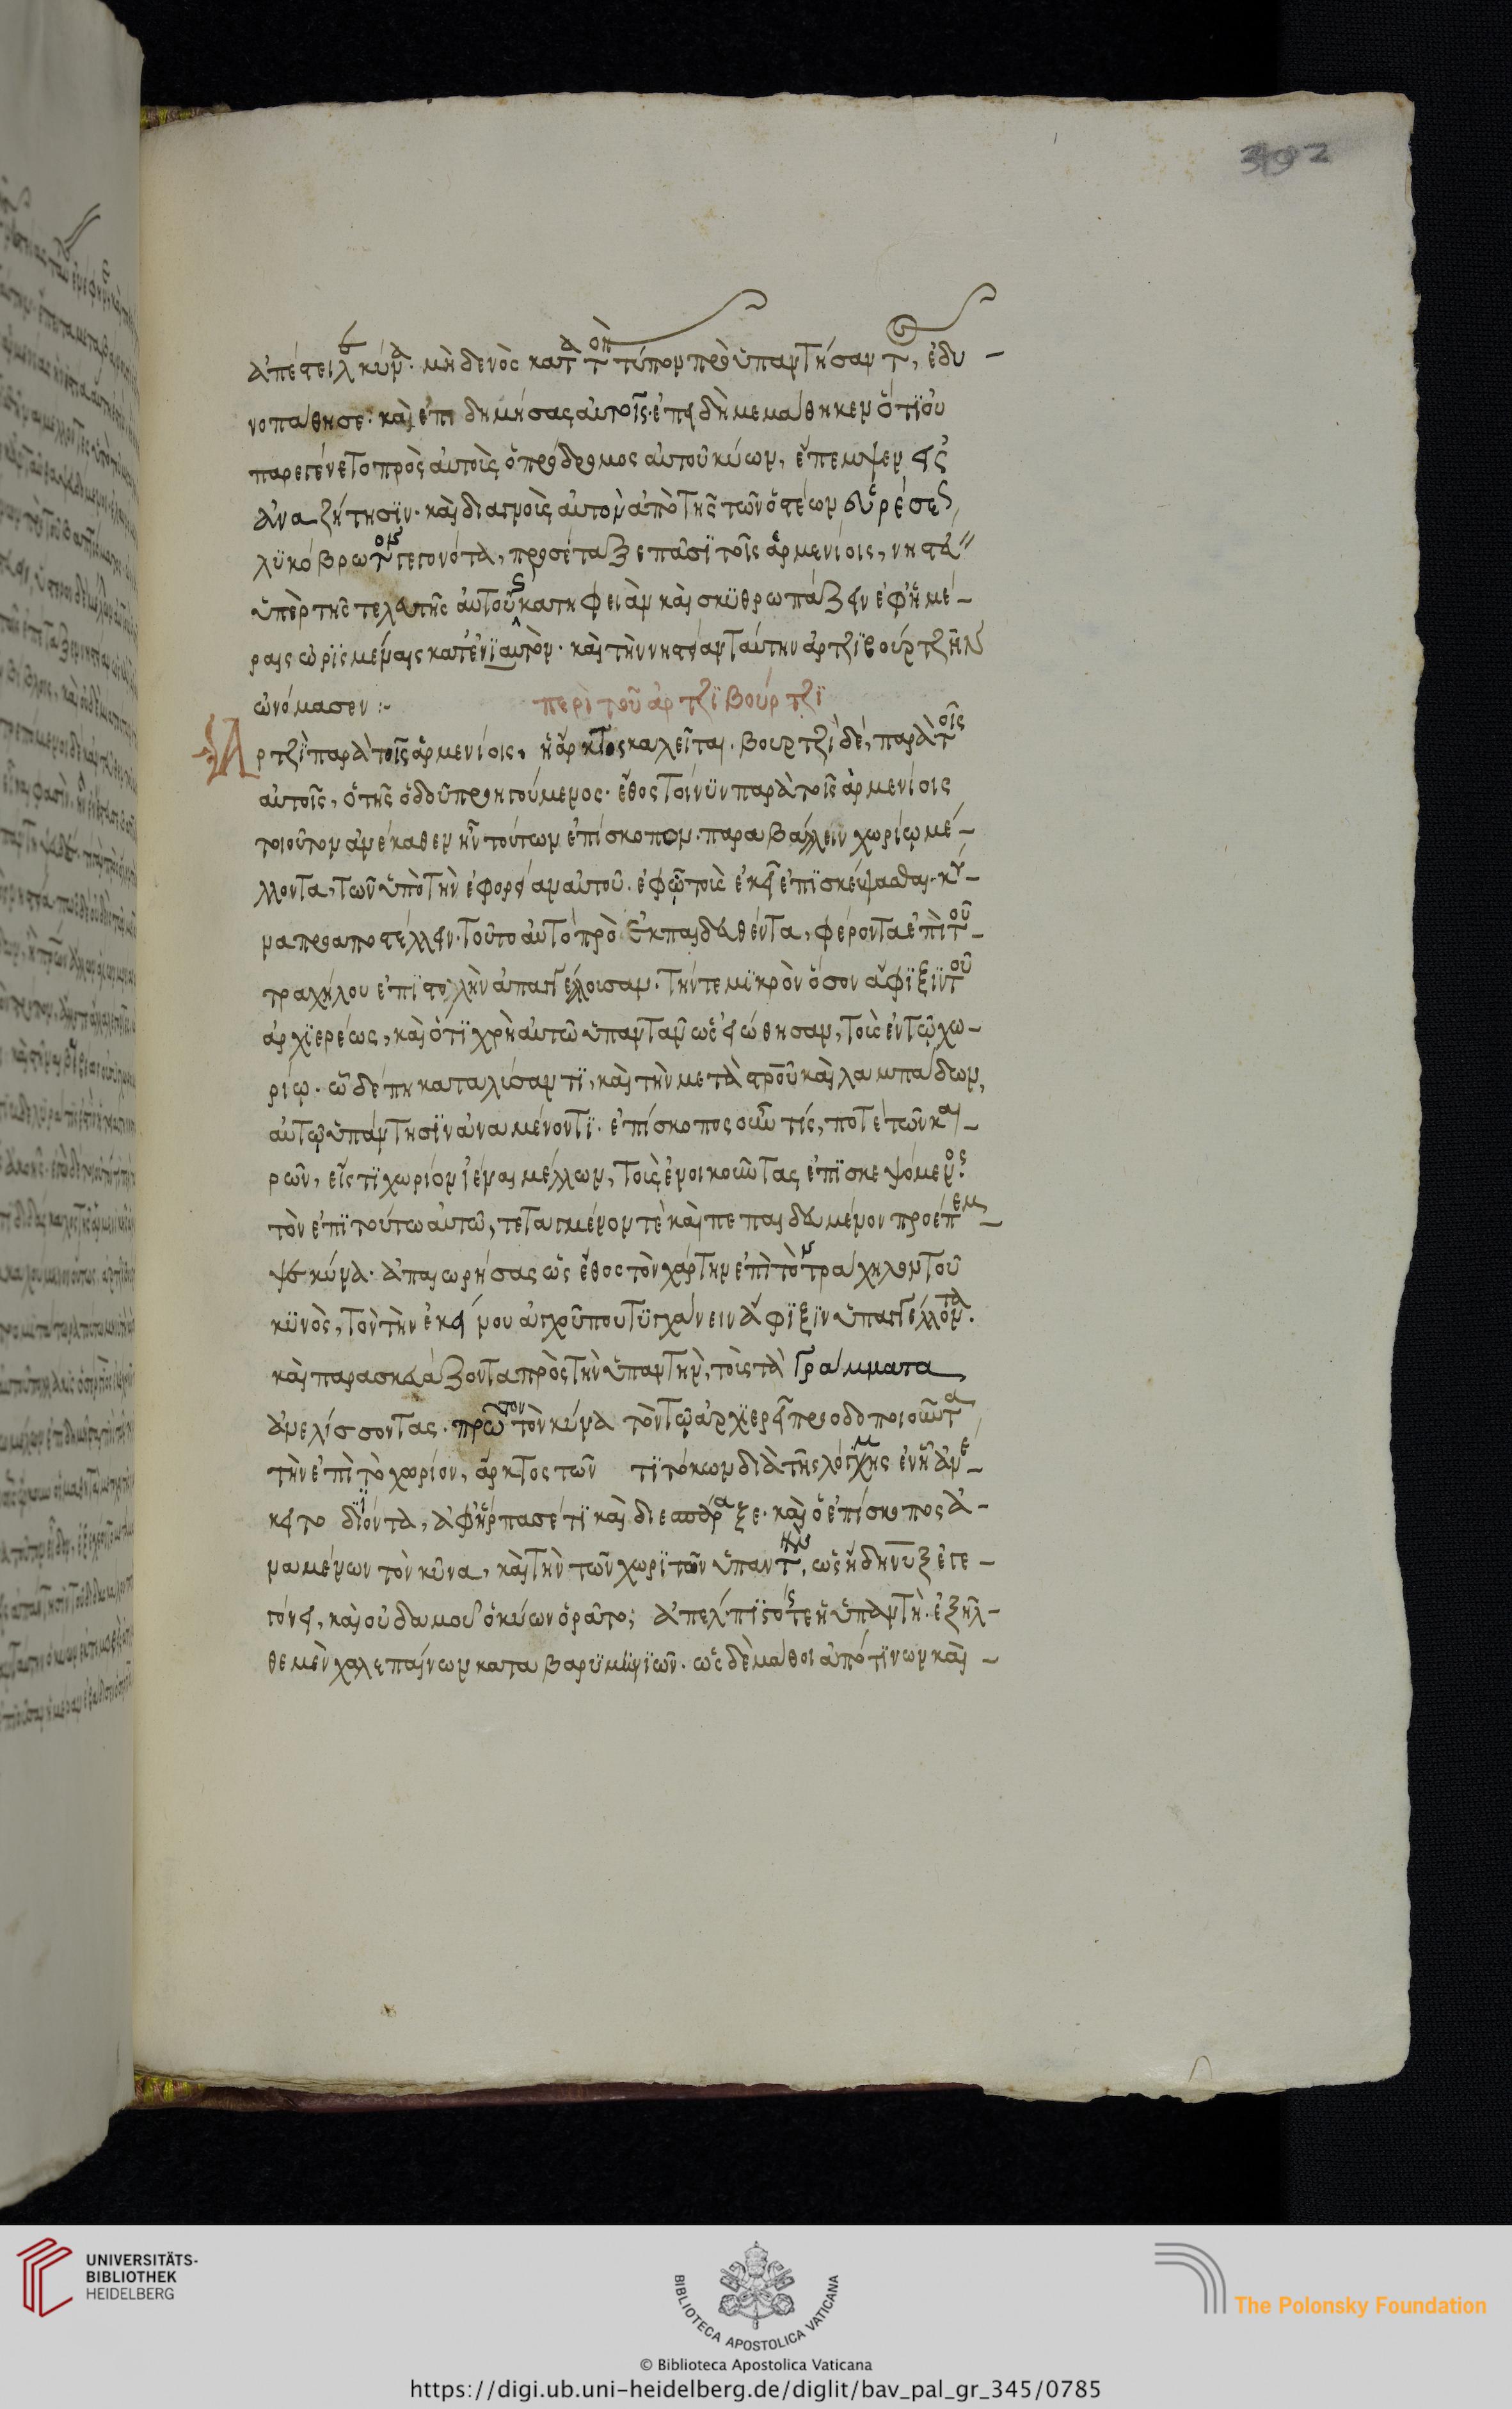 392
ἀπέστειλε κύνα. μηδενὸς κατὰ τὸν τύπον προϋπαντήσαντος, ἐδυ-
νοπάθησε. καὶ ἐπιδημήσας αὐτοῖς. ἐπεὶ δὴ μεμάθηκεν ὅτι οὐ
παρεγένετο πρὸς αὐτοὺς ὁ πρόδρομος αὐτοῦ κύων, ἔπεμψεν εἰς
ἀναζήτησιν. καὶ διαγνοὺς αὐτὸν ἀπὸ τῆς τῶν ὀστέων εὑρέσεως
λυκόβρωτον γεγονότα, προσέταξε πᾶσι τοῖς ἀρμενίοις, νηστεί
ὑπὲρ τῆς τελευτῆς αὐτοῦ κατηφειὰν καὶ σκυθρωπάζειν ἐφ' ἡμέ-
ραις ὡρισμέναις κατ' ἐνιαυτόν. καὶ τὴν νηστείαν ταύτην ἀρτζιβούρτζην
ὠνόμασεν :- περὶ τοῦ ἀρτζιβούρτζι
Ἀρτζὶ παρὰ τοῖς ἀρμενίοις, ἡ ἄρκτος καλεῖται. βουρτζὶ δὲ, παρὰ τοῖς
αὐτοῖς, ὁ τῆς ὁδοῦ προηγούμενος. ἔθος τοίνυν παρὰ τοῖς ἀρμενίοις
τοιοῦτον ἀνέκαθεν ἦν τούτων ἐπίσκοπον. παραβάλλειν χωρίω μέ-
λλοντα, τῶν ὑπὸ τὴν ἐφορείαν αὐτοῦ. ἐφ' ᾧ τοὺς ἐκεῖ ἐπισκέψασθαι. κύ-
να προαποστέλλειν. τοῦτο αὐτὸ πρὸ ἐκπαιδευθέντα, φέροντα ἐπὶ τοῦ-
τραχήλου ἐπιστολὴν ἀπαγγέλλουσαν. τήν τε μικρὸν ὅσον ἄφιξιν τοῦ
ἀρχιερέως, καὶ ὅτι χρὴ αὐτῶ ὑπαντᾶν ὡς εἰώθησαν, τοὺς ἐν τῷ χω-
ρίῳ. ὧδέ πη καταλύσαντι, καὶ τὴν μετὰ σταυροῦ καὶ λαμπάδων,
αὐτῷ ὑπάντησιν ἀναμένοντι. ἐπίσκοπος οὖν τίς, ποτὲ τῶν και-
ρῶν, εἴς τι χωρίον ἰέναι μέλλων, τοὺς ἐνοικοῦντας ἐπισκεψόμενος.
τὸν ἐπὶ τούτω αὐτῶ, τεταγμένον τὲ καὶ πεπαιδευμένον προέπεμ-
ψε κύνα. ἀπαιωρήσας ὡς ἔθος τὸν χάρτην ἐπὶ τὸν τράχηλον τοῦ
κυνὸς, τὸν τὴν ἐκείνου ἀγχοῦ που τυγχάνειν ἄφιξιν ὑπαγγέλλοντα.
καὶ παρασκευάζοντα πρὸς τὴν ὑπαντὴν, τοὺς τὰ γράμματα
ἀνελίσσοντας. πρῶτον τὸν κύνα τὸν τῷ ἀρχιερεῖ προοδοποιοῦντα
τὴν ἐπὶ τὸ χωρίον, ἄρκτος τῶν τιτόκων διὰ τῆς λόχμης ἐν ἧ ἀνέ-
κειτο διϊόντα, ἀφήρπασέ τι καὶ διεσπάραξε. καὶ ὁ ἐπίσκοπος ἀ-
ναμένων τὸν κύνα, καὶ τὴν τῶν χωριτῶν ὑπαντὴν, ὡς ἤδη νὺξ ἐγε-
γόνει, καὶ οὐδαμοῦ ὁ κύων ὁρᾶτο; ἀπέλπιστός τε ἡ ὑπαντὴ. ἐξῆλ-
θε μὲν χαλεπαίνων καὶ βαρυμηνιῶν. ὡς δὲ μάθοι ἀπό τινων καὶ -
UNIVERSITÄTS-
BIBLIOTHEK
HEIDELBERG
BIBLIOTECA APOSTOLICA VATICANA
The Polonsky Foundation
© Biblioteca Apostolica Vaticana
https://digi.ub.uni-heidelberg.de/diglit/bav_pal_gr_345/0785